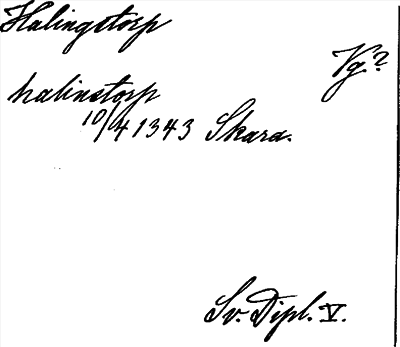 Halingstorp
Vg?
halinstorp
10/4 1343 Skara.
Sv. Dipl. V.